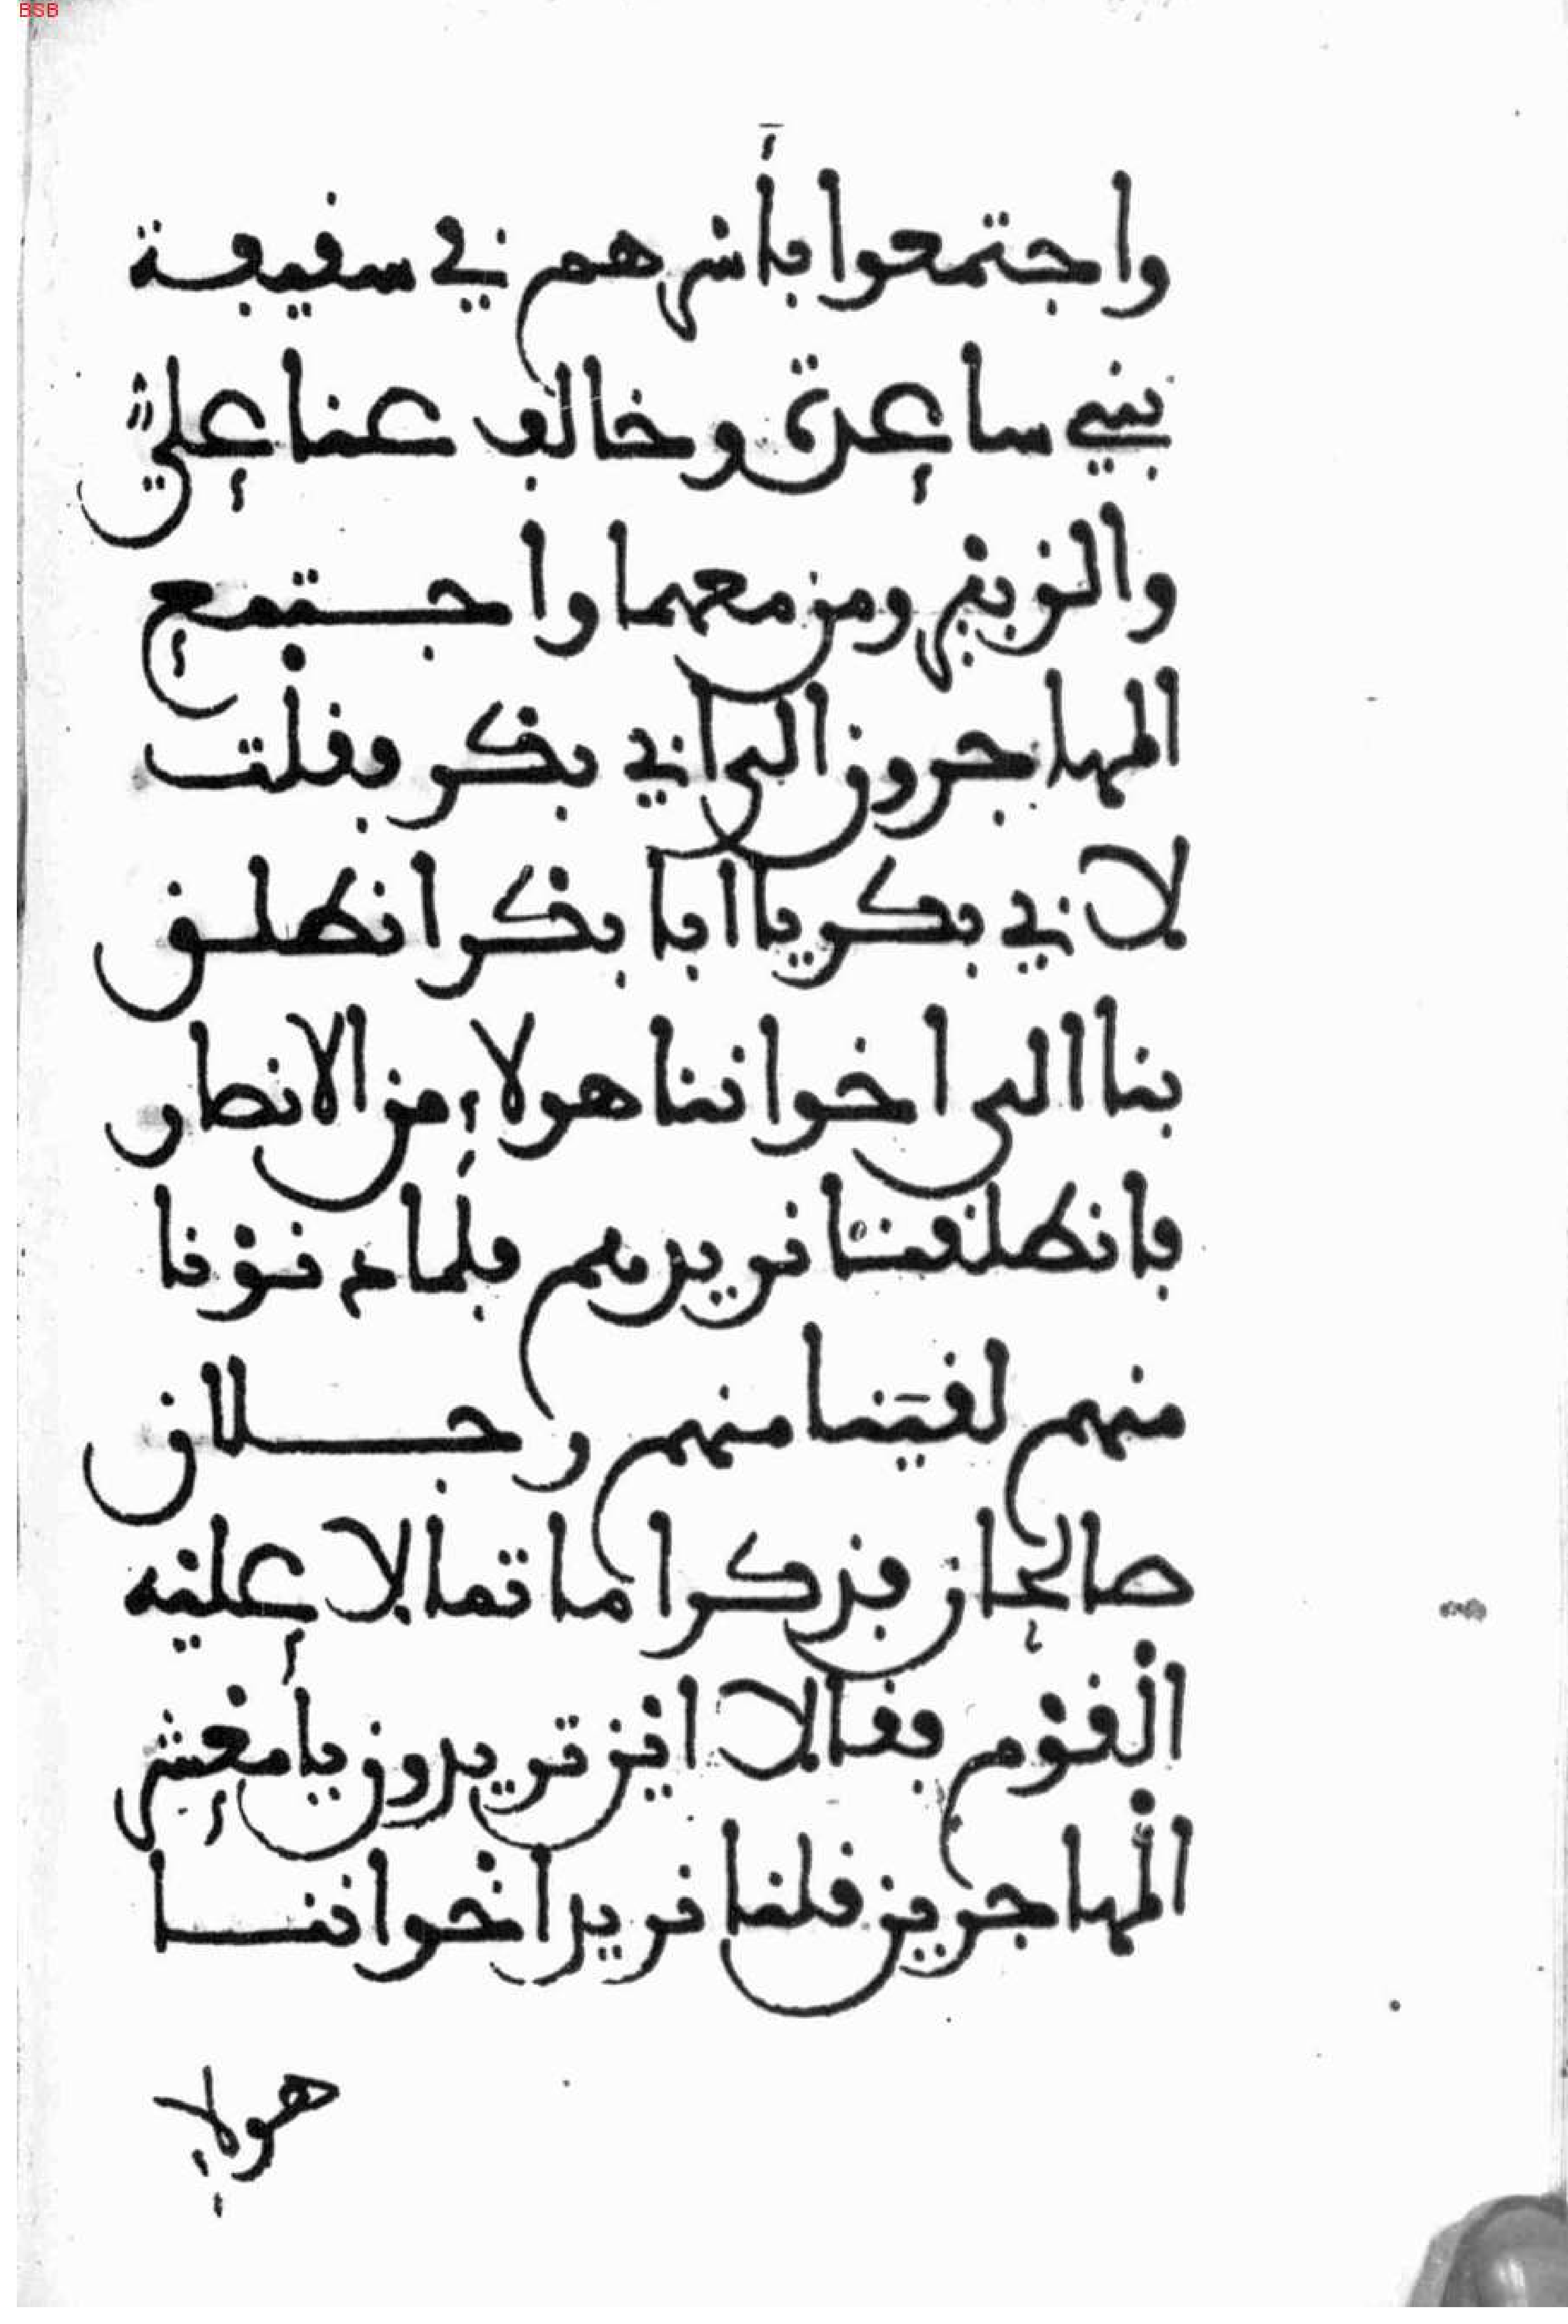 BSB
واجتمعوا بأسرهم في سقيفة
بني ساعدة وخالف عنا علي
والزبير ومن معهما واجتمع
المهاجرون الى ابي بكر فقلت
لابي بكر يا ابا بكر انطلق
بنا الى اخواننا هولاء من الانصار
فانطلقنا نريدهم فلما دنونا
منهم لقينا منهم رجلان
صالحان فذكرا ما تمالا عليه
القوم فقالا اين تريدون يا معشر
المهاجرين قلنا نريد اخواننا
هولاء